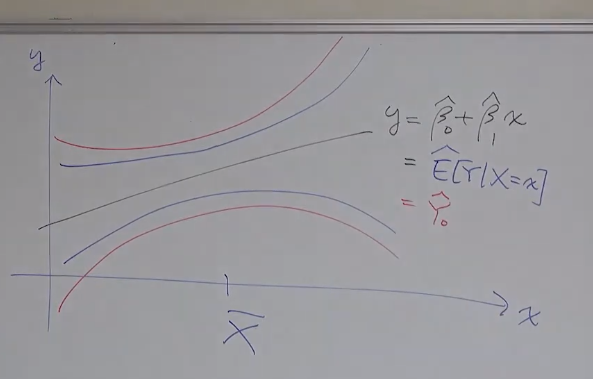 y
y = β̂₀ + β̂₁ x
= Ê[Y|X=x]
= Ŷ₀
X̄
x